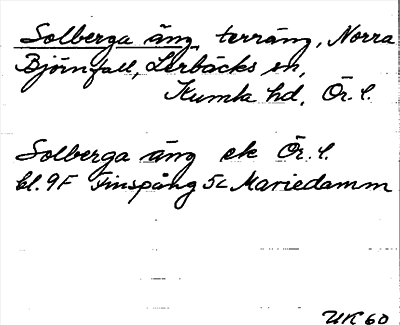 Solberga äng, terräng, Norra
Björnfall, Lerbäcks sn,
Kumla hd, Ör. l.
Solberga äng ek Ör. l.
bl. 9F Finspång 5c Mariedamm
UK 60